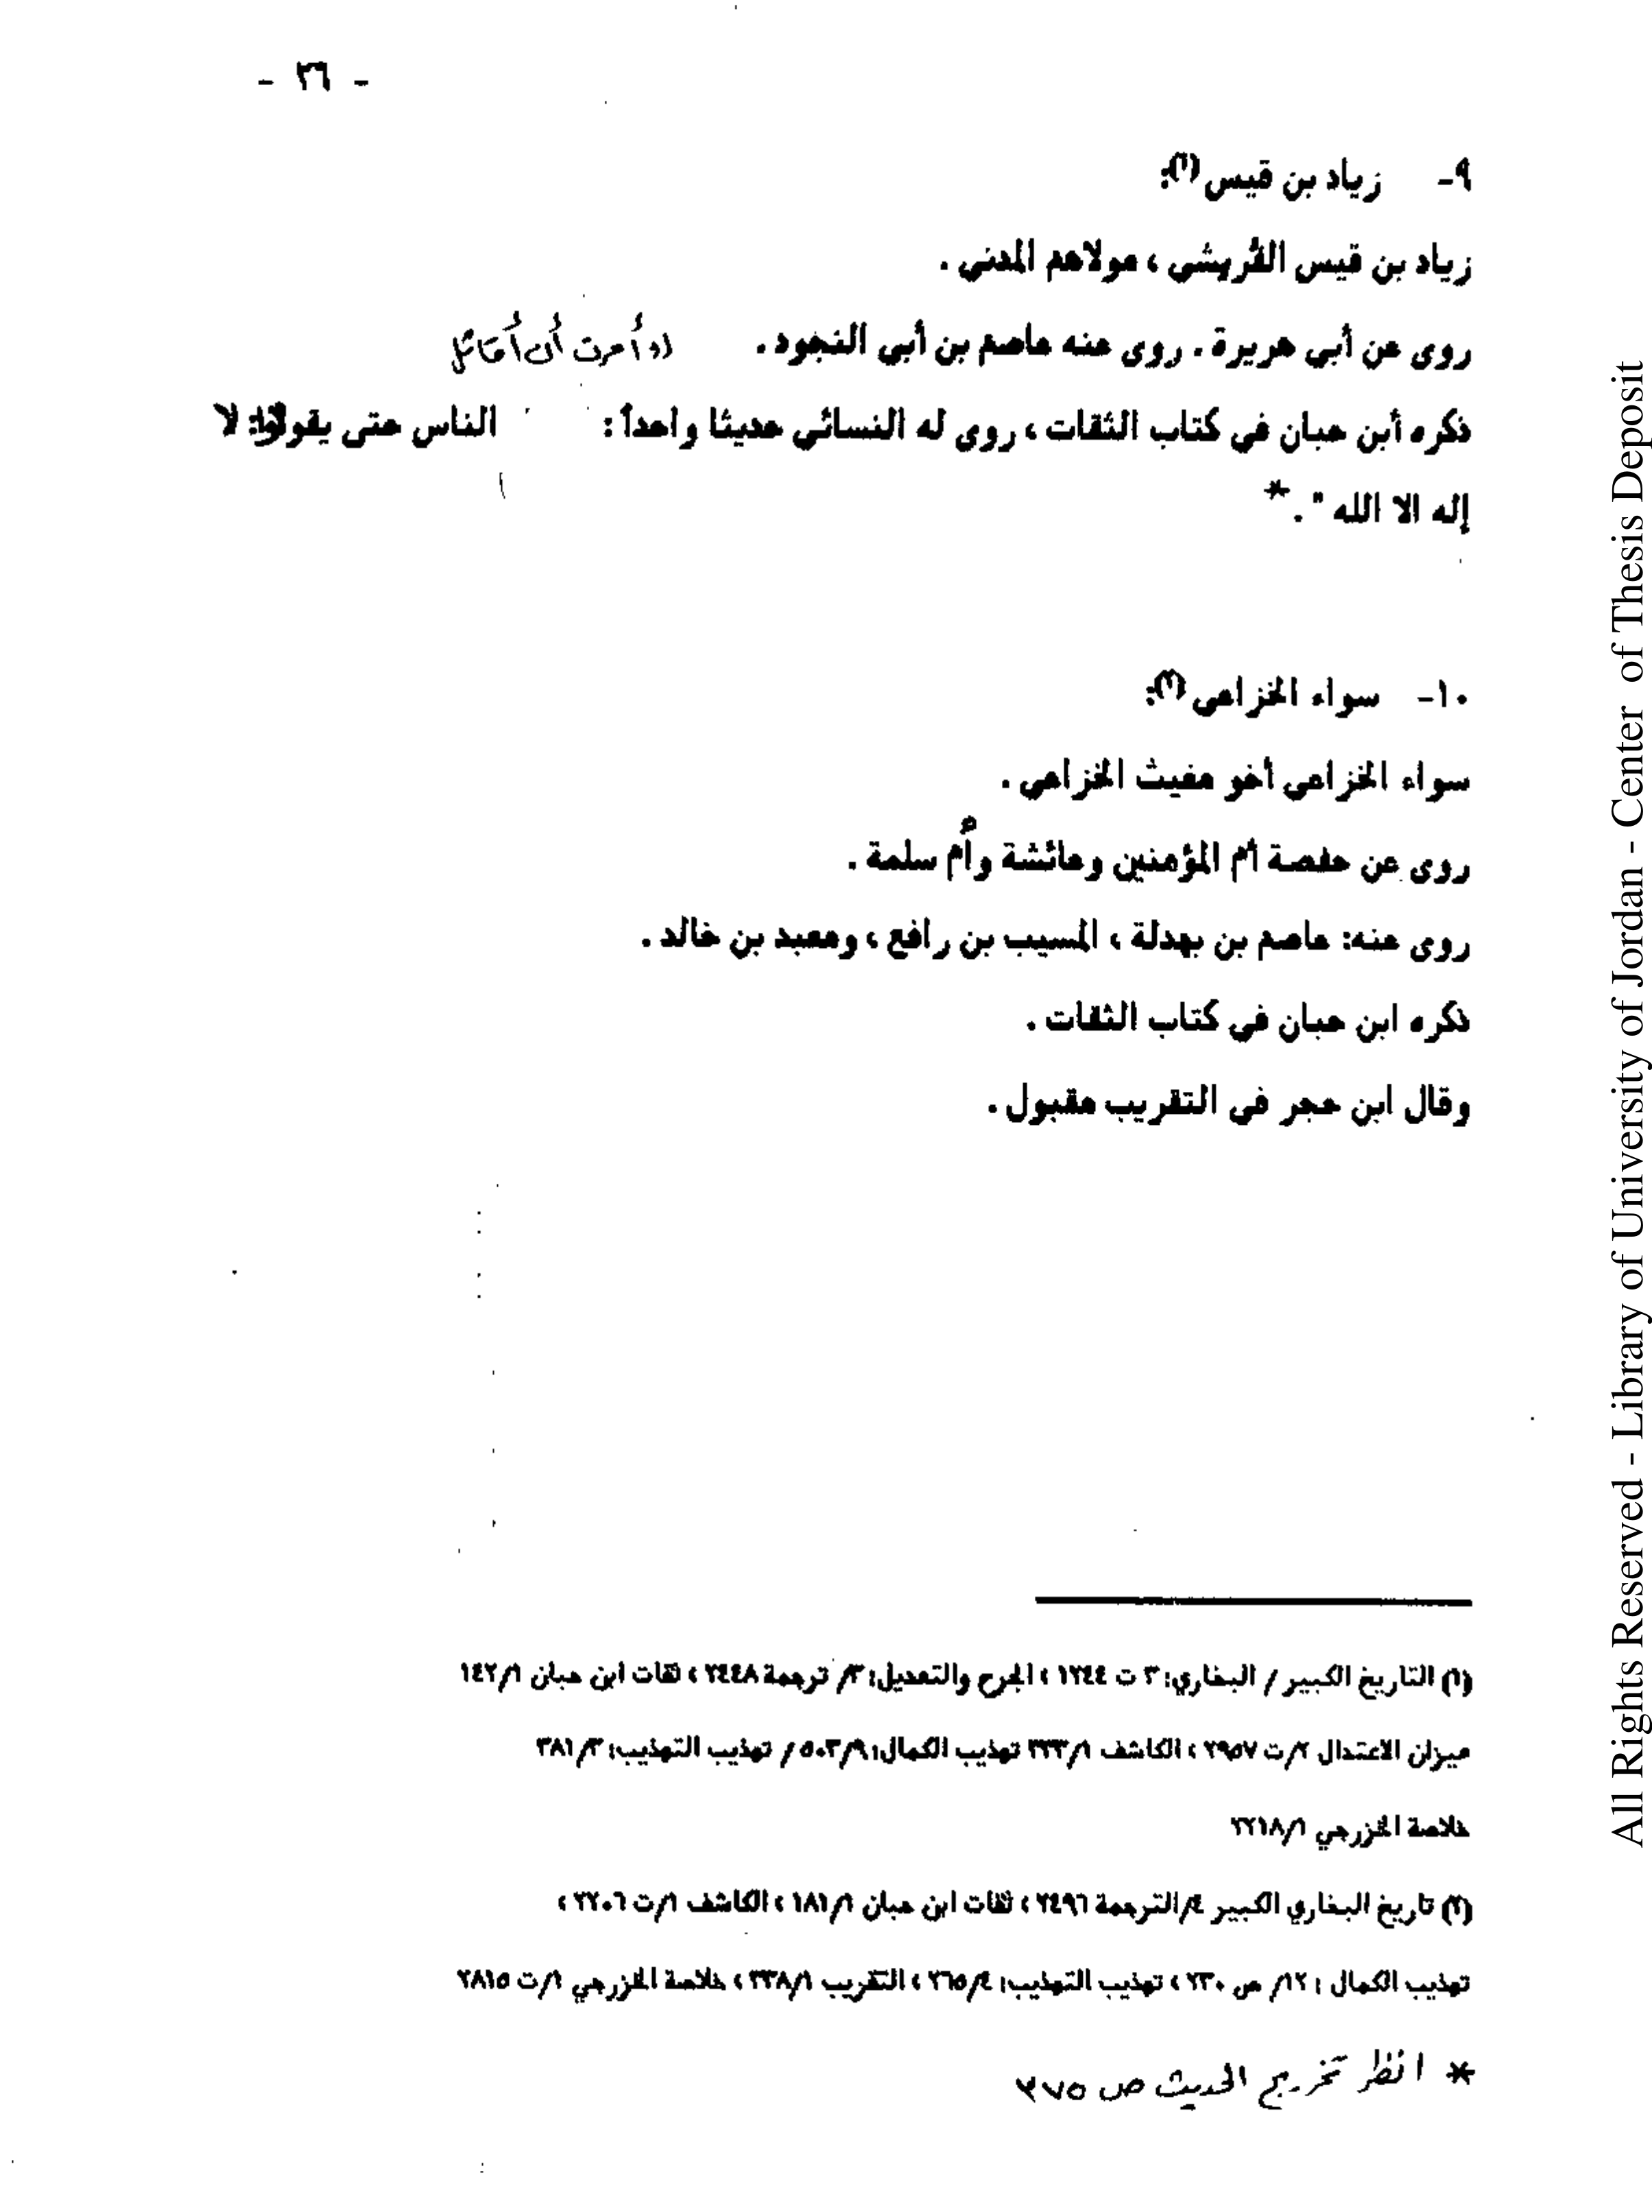 - ٣٦ -
٩- زياد بن قيس (١):
زياد بن قيس القُريشي ، مولاهم المدني .
روى عن أبي هريرة . روى عنه عاصم بن أبي النجود . "أُمرت أُن أُقاتل
ذكره أبن حبان في كتاب الثقات ، روى له النسائي حديثا واحداً : الناس حتى يقولوا: لا
إله الا الله " . *
١٠- سواء الخزاعي (٢):
سواء الخزاعي أخو مغيث الخزاعي .
روى عن حفصة أم المؤمنين وعائشة وأُم سلمة .
روى عنه: عاصم بن بهدلة ، المسيب بن رافع ، ومعبد بن خالد .
ذكره ابن حبان في كتاب الثقات .
وقال ابن حجر في التقريب مقبول .
(١) التاريخ الكبير / البخاري: ٣ ت ١٢٤٤ ، الجرح والتعديل: ٣/ ترجمة ٢٤٤٨ ، ثقات ابن حبان ١٤٢/١
ميزان الاعتدال ٢/ت ٢٩٥٧ ، الكاشف ٣٣٣/١ تهذيب الكمال: ٥٠٣/٩ / تهذيب التهذيب: ٣٨١/٣
خلاصة الخزرجي ٢٢١٨/١
(٢) تاريخ البخاري الكبير ٤/الترجمة ٢٤٩٦ ، ثقات ابن حبان ١٨١/١ ، الكاشف ١/ت ٢٢٠٦ ،
تهذيب الكمال : ١٢/ ص ٢٣٠ ، تهذيب التهذيب: ٢٦٥/٤ ، التقريب ٣٣٨/١ ، خلاصة الخزرجي ١/ت ٢٨١٥
* انظر تخريج الحديث ص ٣٧٥
All Rights Reserved - Library of University of Jordan - Center of Thesis Deposit